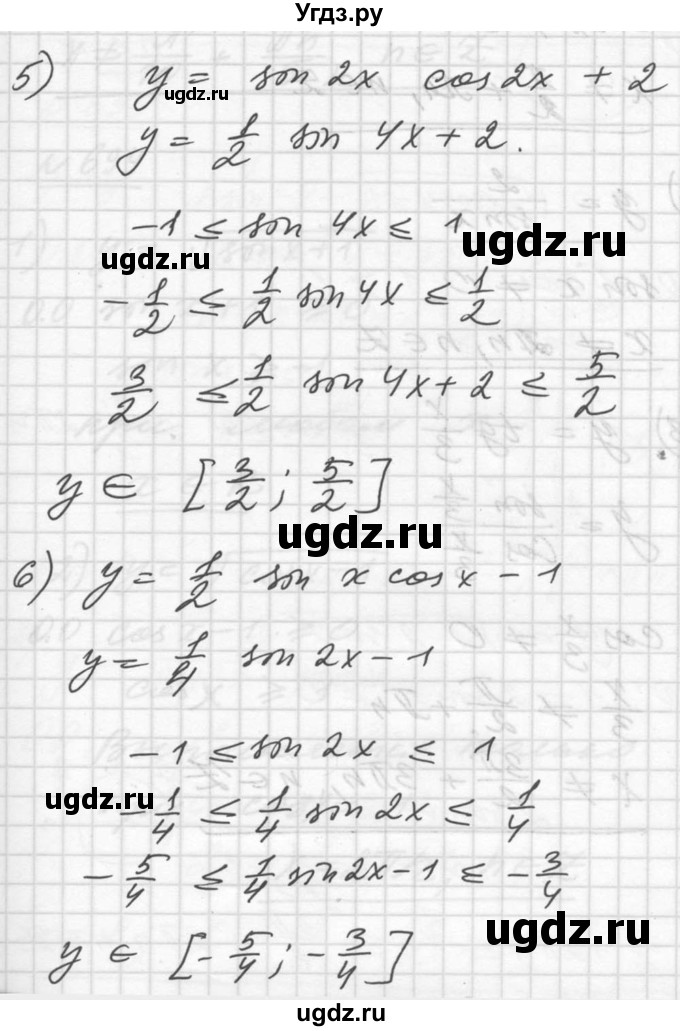 Угдз.ру
5) y = sin 2x cos 2x + 2
ugdz.ru
y = 1/2 sin 4x + 2.
-1 ≤ sin 4x ≤ 1
ugdz.ru
ugdz.ru
-1/2 ≤ 1/2 sin 4x ≤ 1/2
3/2 ≤ 1/2 sin 4x + 2 ≤ 5/2
y ∈ [3/2; 5/2]
ugdz.ru
6) y = 1/2 sin x cos x - 1
y = 1/4 sin 2x - 1
-1 ≤ sin 2x ≤ 1
ugdz.ru
-1/4 ≤ 1/4 sin 2x ≤ 1/4
-5/4 ≤ 1/4 sin 2x - 1 ≤ -3/4
ugdz.ru
y ∈ [-5/4; -3/4]
ugdz.ru